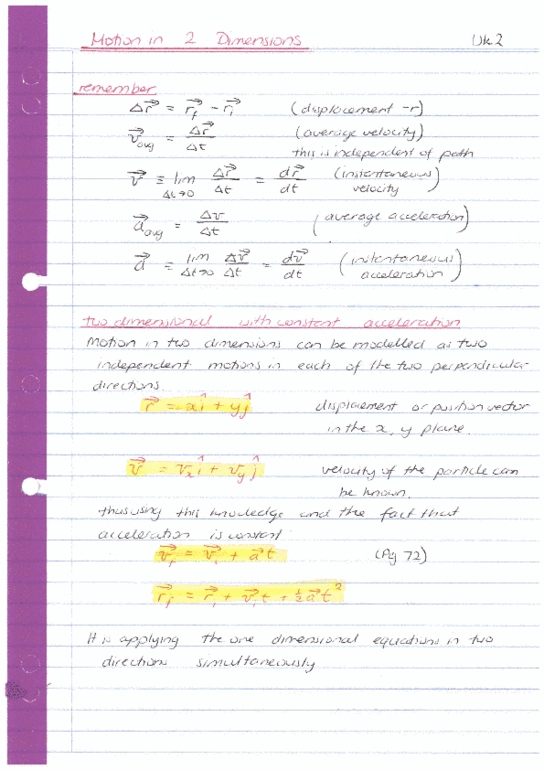 Motion in 2 Dimensions Wk 2
remember
Δr⃗ = r⃗f - r⃗i (displacement -r)
v⃗avg = Δr⃗/Δt (average velocity)
this is independent of path
v⃗ ≡ lim Δt→0 Δr⃗/Δt = dr⃗/dt (instantaneous velocity)
a⃗avg = Δv/Δt (average acceleration)
a⃗ = lim Δt→0 Δv⃗/Δt = dv⃗/dt (instantaneous acceleration)
two dimensional with constant acceleration
Motion in two dimensions can be modelled as two
independent motions in each of the two perpendicular
directions.
r⃗ = xî + yĵ displacement or position vector
in the x, y plane.
v⃗ = vxî + vyĵ velocity of the particle can
be known.
thus using this knowledge and the fact that
acceleration is constant
v⃗f = v⃗i + a⃗t (Pg 72)
r⃗f = r⃗i + v⃗it + ½a⃗t²
It is applying the one dimensional equations in two
directions simultaneously